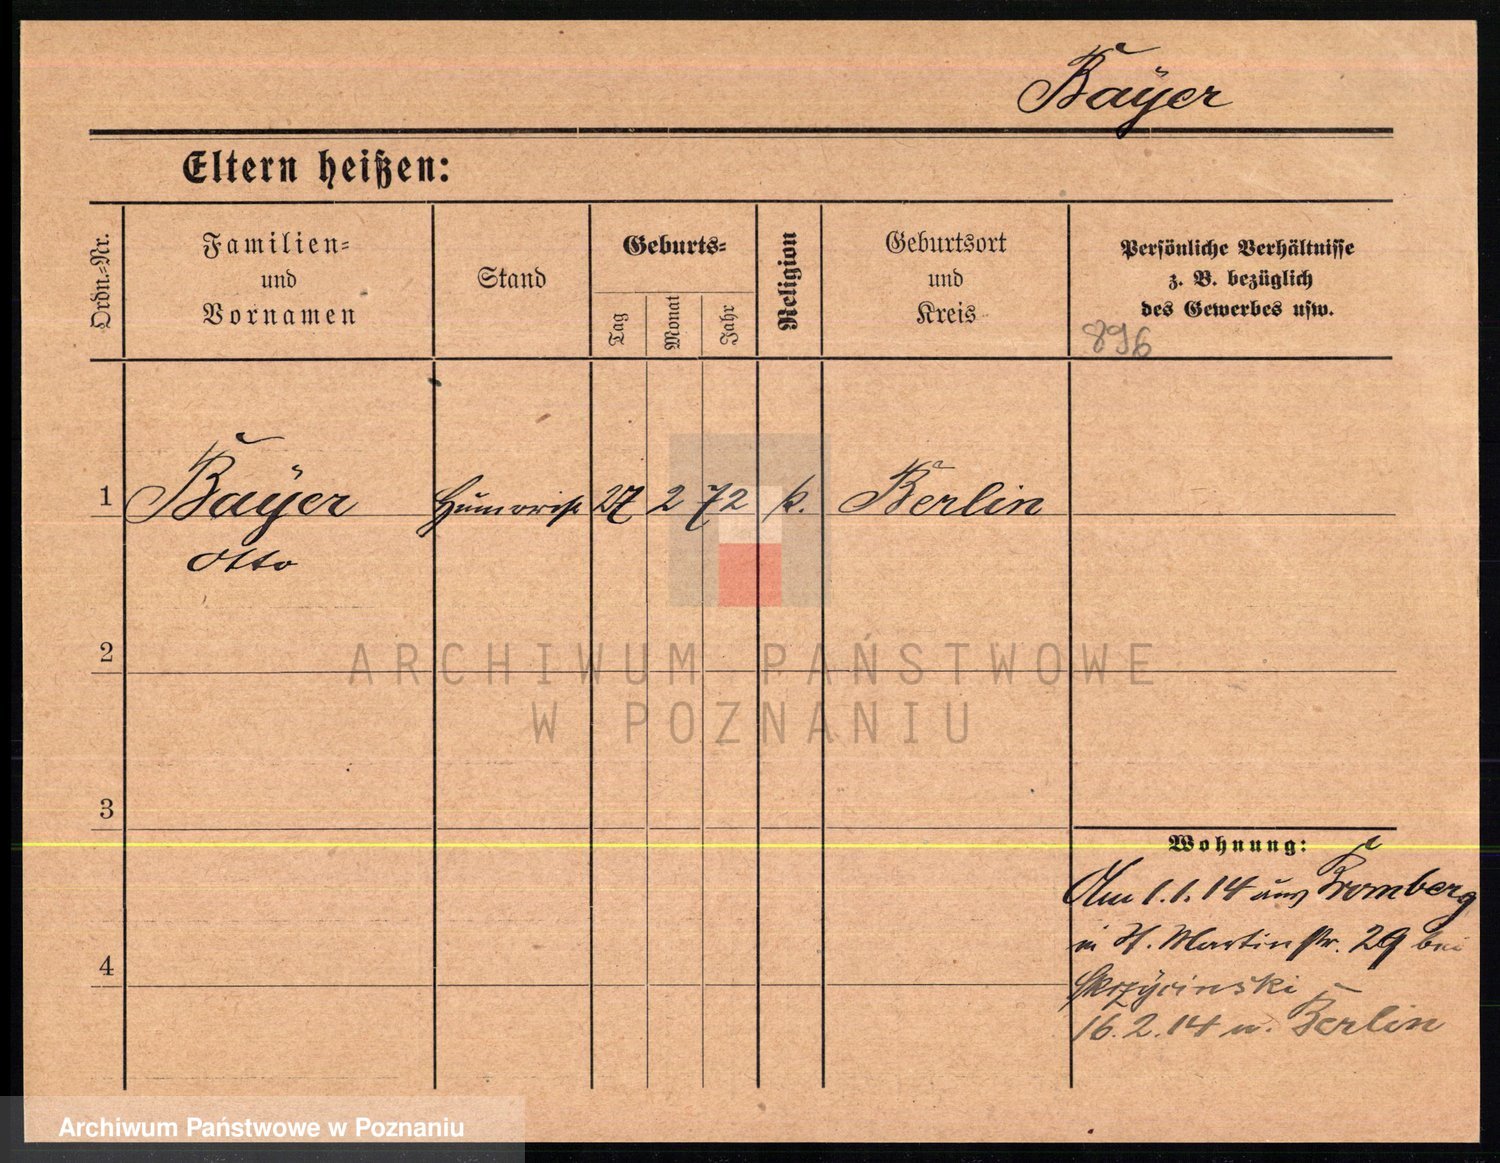 Bayer
Eltern heißen:
Ordn.-Nr.
Familien-
und
Vornamen
Stand
Geburts-
Tag
Monat
Jahr
Religion
Geburtsort
und
Kreis
Persönliche Verhältnisse
z. B. bezüglich
des Gewerbes usw.
896
1 Baÿer Humorist 27 2 72 k. Berlin
Otto
2
ARCHIWUM PAŃSTWOWE
W POZNANIU
3
Wohnung:
Am 1.1.14 aus Bromberg
in St. Martinstr. 29 bei
4
Skrzÿcinski
16.2.14 n. Berlin
Archiwum Państwowe w Poznaniu